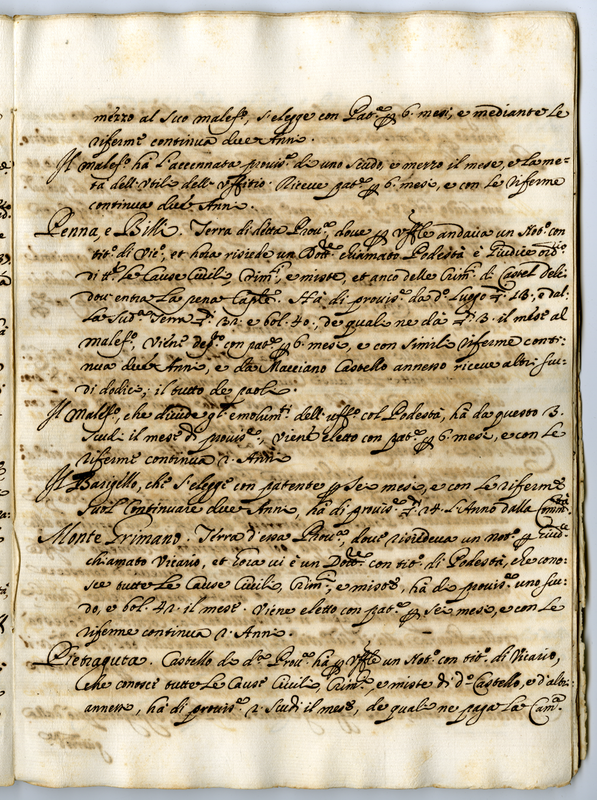 mezzo al suo malefo, s'elegge con Pate p 6. mesi, e mediante le
riferme continua due Anni.
Il malefo hà l'accennata provise di uno scudo, e mezzo il mese, e la me-
tà dell'Utili dell'uffitio. Riceve pate p 6. mesi, e con le riferme
continua due Anni.
Penna, e Billi. Terra di detta Prove, dove p uffle andava un Note con
tito di Vico, et hora risiede un Dotre chiamato Podestà è Iudice ordo
di tte le Cause Civili, Crimli, e miste, et anco delle Crimli di Castel Delci
dou'entra la pena Caple. Hà di provise da do luogo 18, e dal-
la suda Terra 32. e bol. 40., de quali ne dà 3. il mese al
malefo. Viene deto con pate p 6. mesi, e con simili riferme conti-
nua due Anni, e da Macciano Castello annesso riceve altri scu-
di dodici; il tutto de paoli.
Il Malefo, che divide gl'emolumti dell'uffo col Podestà, hà da questo 3.
scudi il mese di provise, viene eletto con pate p 6. mesi, e con le
riferme continua 2. Anni
Il Barigello, che s'elegge con patente p sei mesi, e con le riferme
suol continuare due Anni, hà di provise 24. l'Anno dalla Commtà
Monte Grimano. Terra d'essa Prove, dove risiedeva un note p Giudce
chiamato Vicario, et hora vi è un Dotre con tito di Podestà, che cono-
sce tutte le Cause Civili, Crimli, e miste, hà di provise uno scu-
do, e bol. 42. il mese. Viene eletto con pate p sei mesi, e con le
riferme continua 2. Anni.
Pietraguta. Castello di da Prove hà p uffle un Note con tito di Vicario,
che conosce tutte le Cause Civili, Crimli, e miste di do Castello, e d'altri
annessi, hà di provise 2. scudi il mese, de quali ne paga la Cama